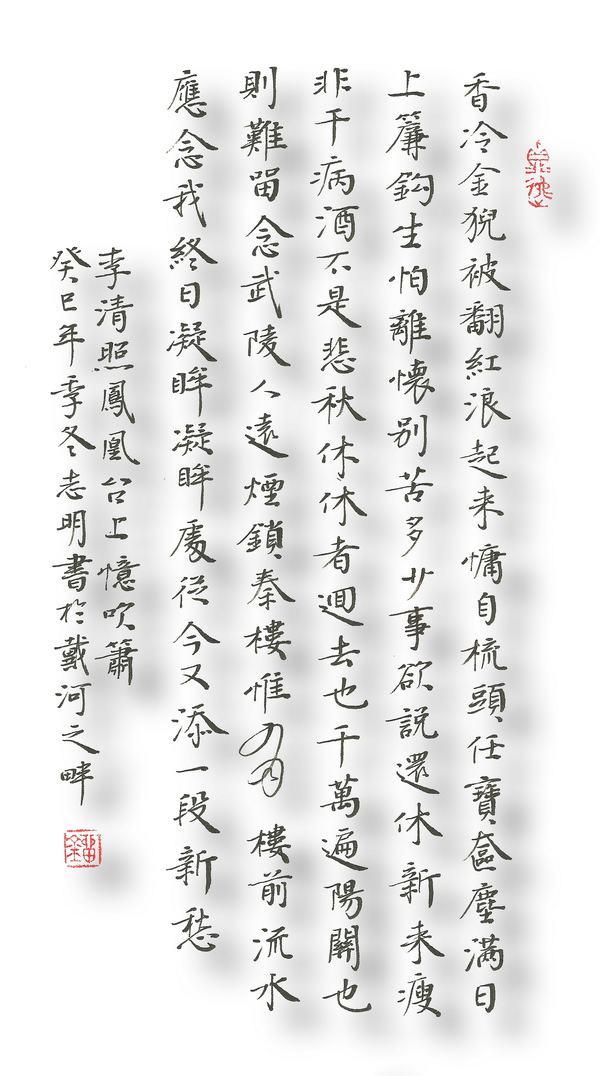 香冷金猊被翻紅浪起来慵自梳頭任寶奩塵满日
上簾鈎生怕離懷别苦多少事欲説還休新来瘦
非干病酒不是悲秋休休者迴去也千萬遍陽關也
則難留念武陵人遠煙鎖秦樓惟有樓前流水
應念我終日凝眸凝眸處從今又添一段新愁
李清照鳳凰台上憶吹簫
癸巳年季冬志明書於戴河之畔